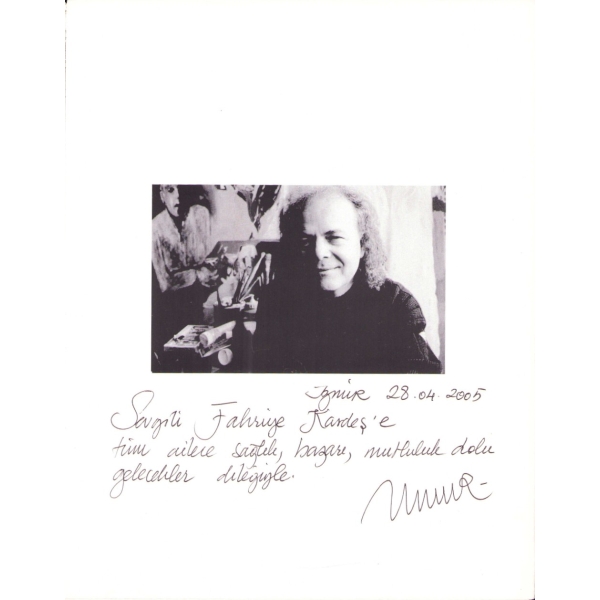 İzmir 28.04.2005
Sevgili Fahriye Kardeş'e
tüm ailece sağlık, başarı, mutluluk dolu
gelecekler dileğiyle.